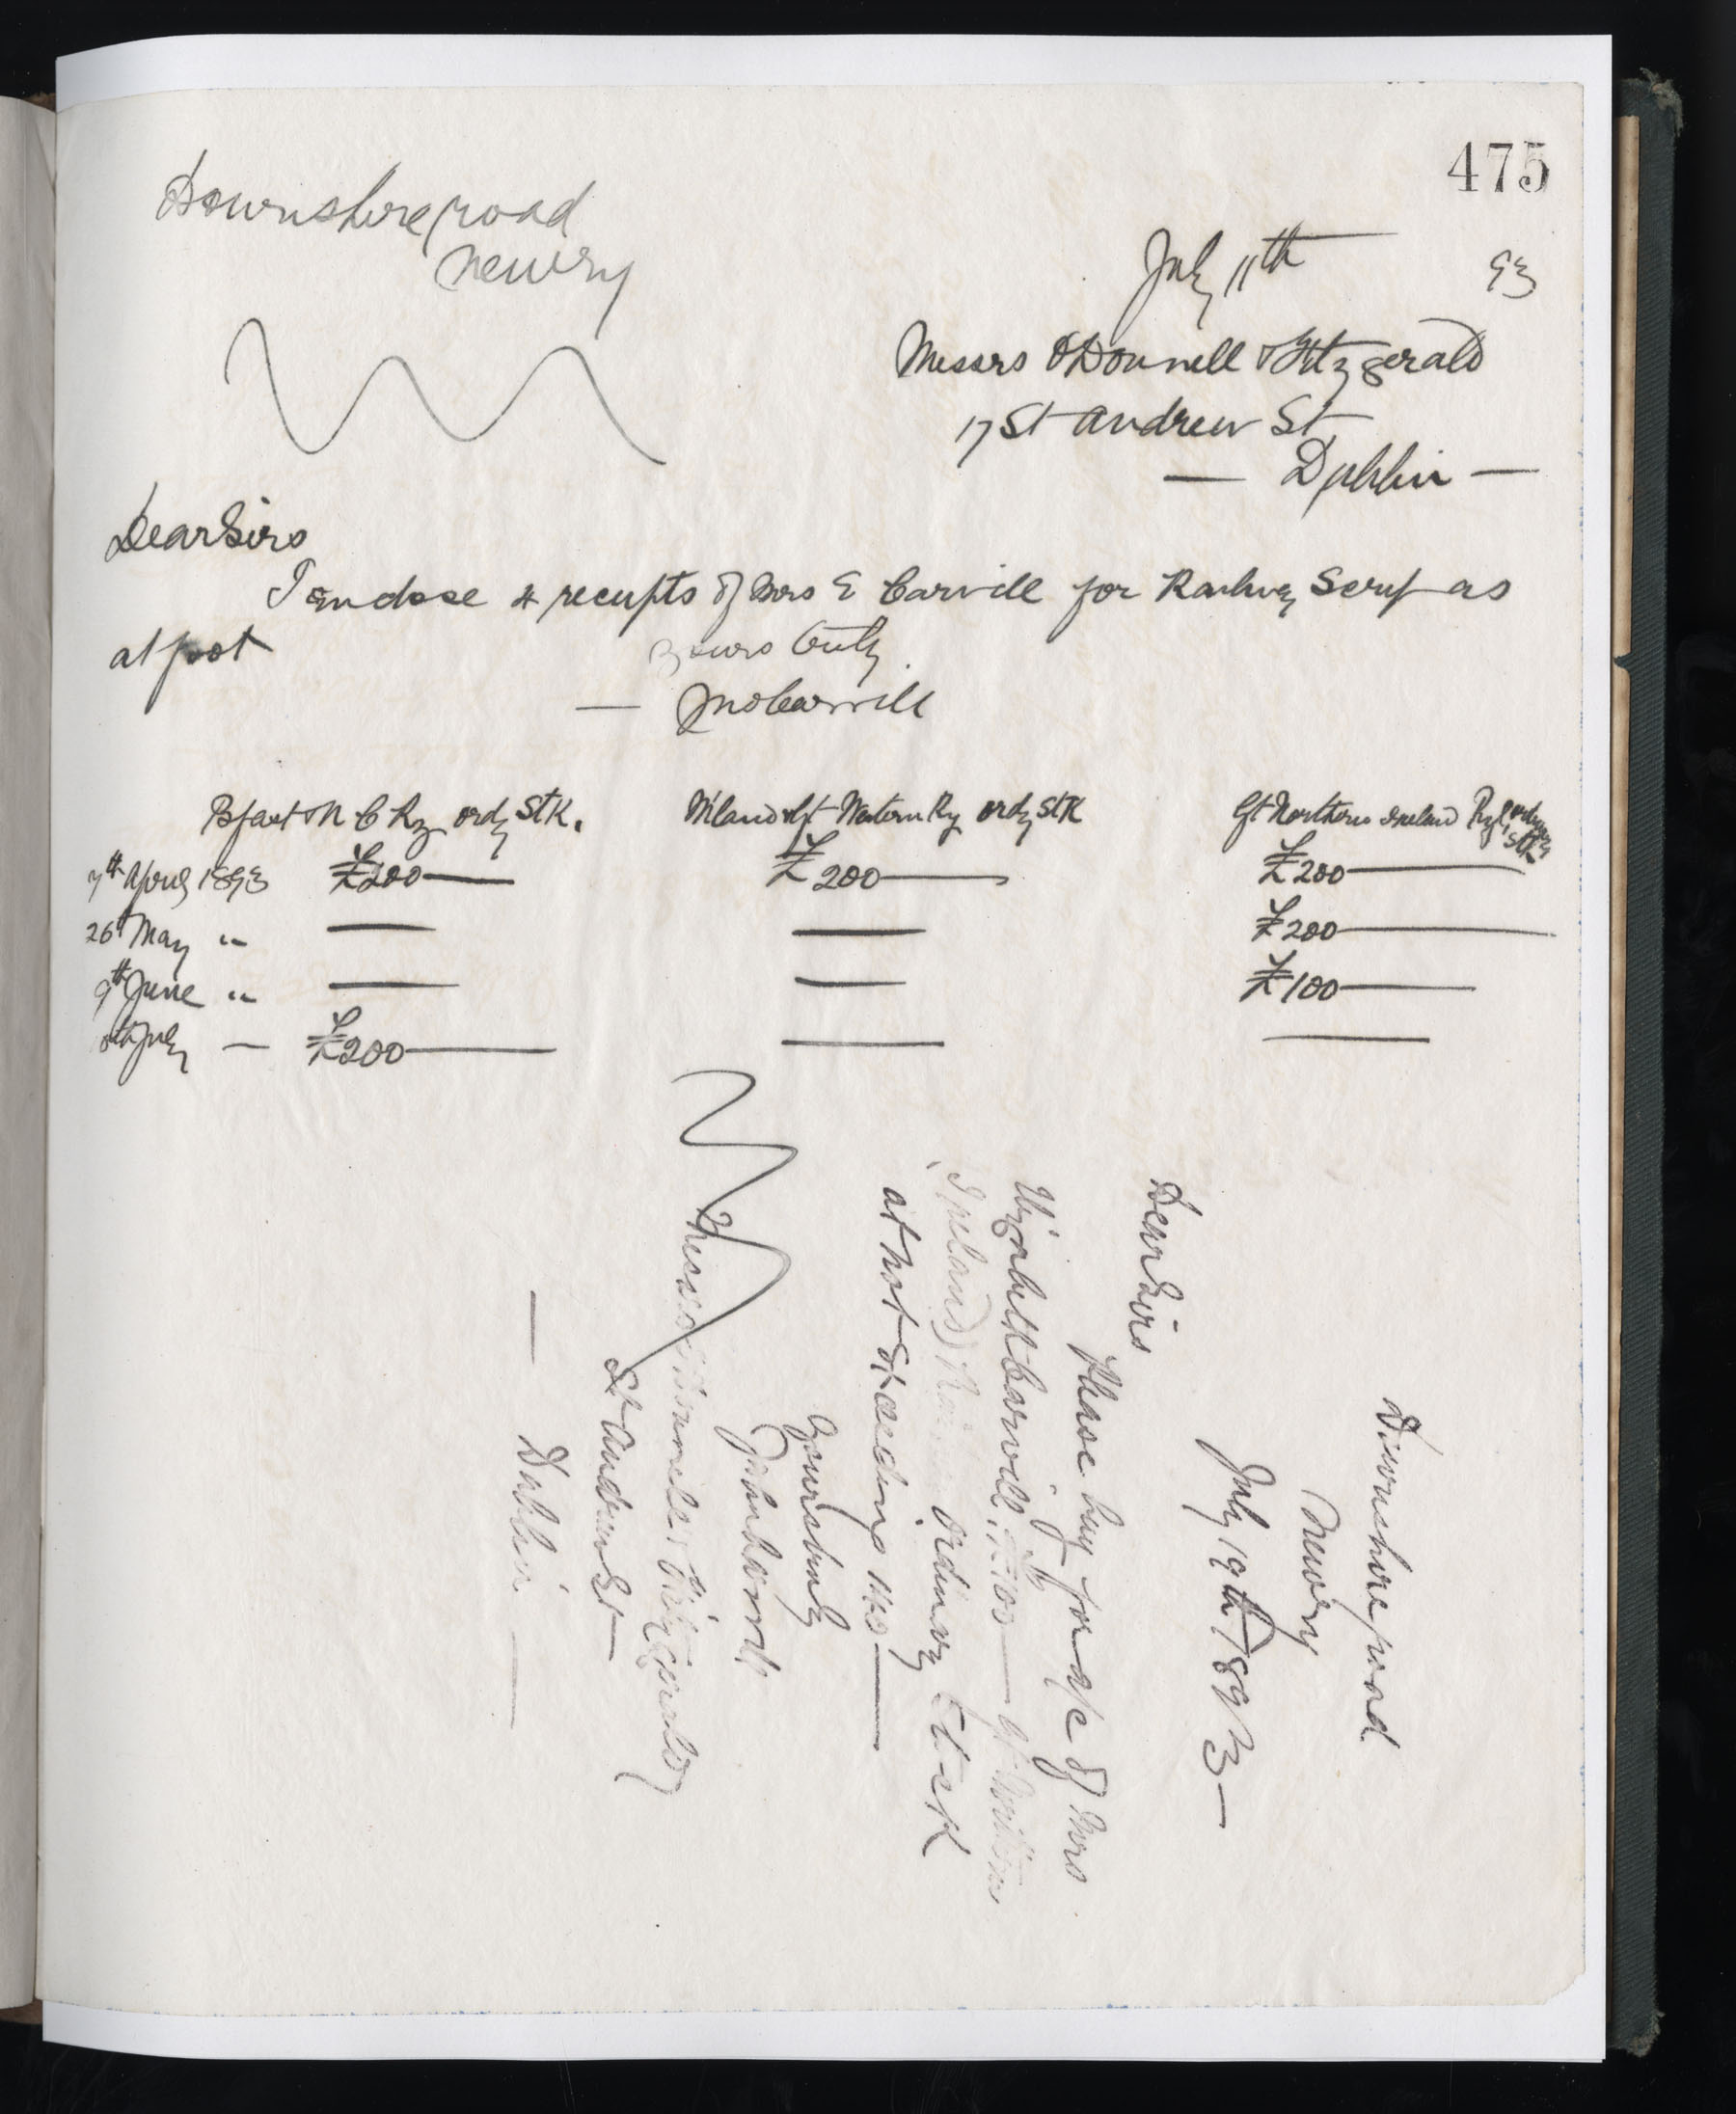 475
Downshire road
Newry
July 11th 93
Messrs O'Donnell & Fitzgerald
17 St Andrew St
— Dublin —
Dear Sirs
I enclose 4 receipts of Mrs E Carvill for Railway Scrip as
at foot
Yours truly
— Jno Carvill
Bfast & N C Ry ordy Stk. Midland & Gt Western Ry ordy Stk Gt Northern Ireland Ry ordinary Stk
7th April 1893 £200— £200— £200—
26th May " — — £200—
9th June " — — £100—
8th July — £200— — —
Downshire road
Newry
July 19th 1893—
Dear Sirs
Please buy for a/c of Mrs
Elizabeth Carvill, £100— Gt Northern
(Ireland) Ordinary Stock
at not exceeding 140—
Yours truly
John Carvill
Messrs O'Donnell & Fitzgerald
St Andrew St
— Dublin —